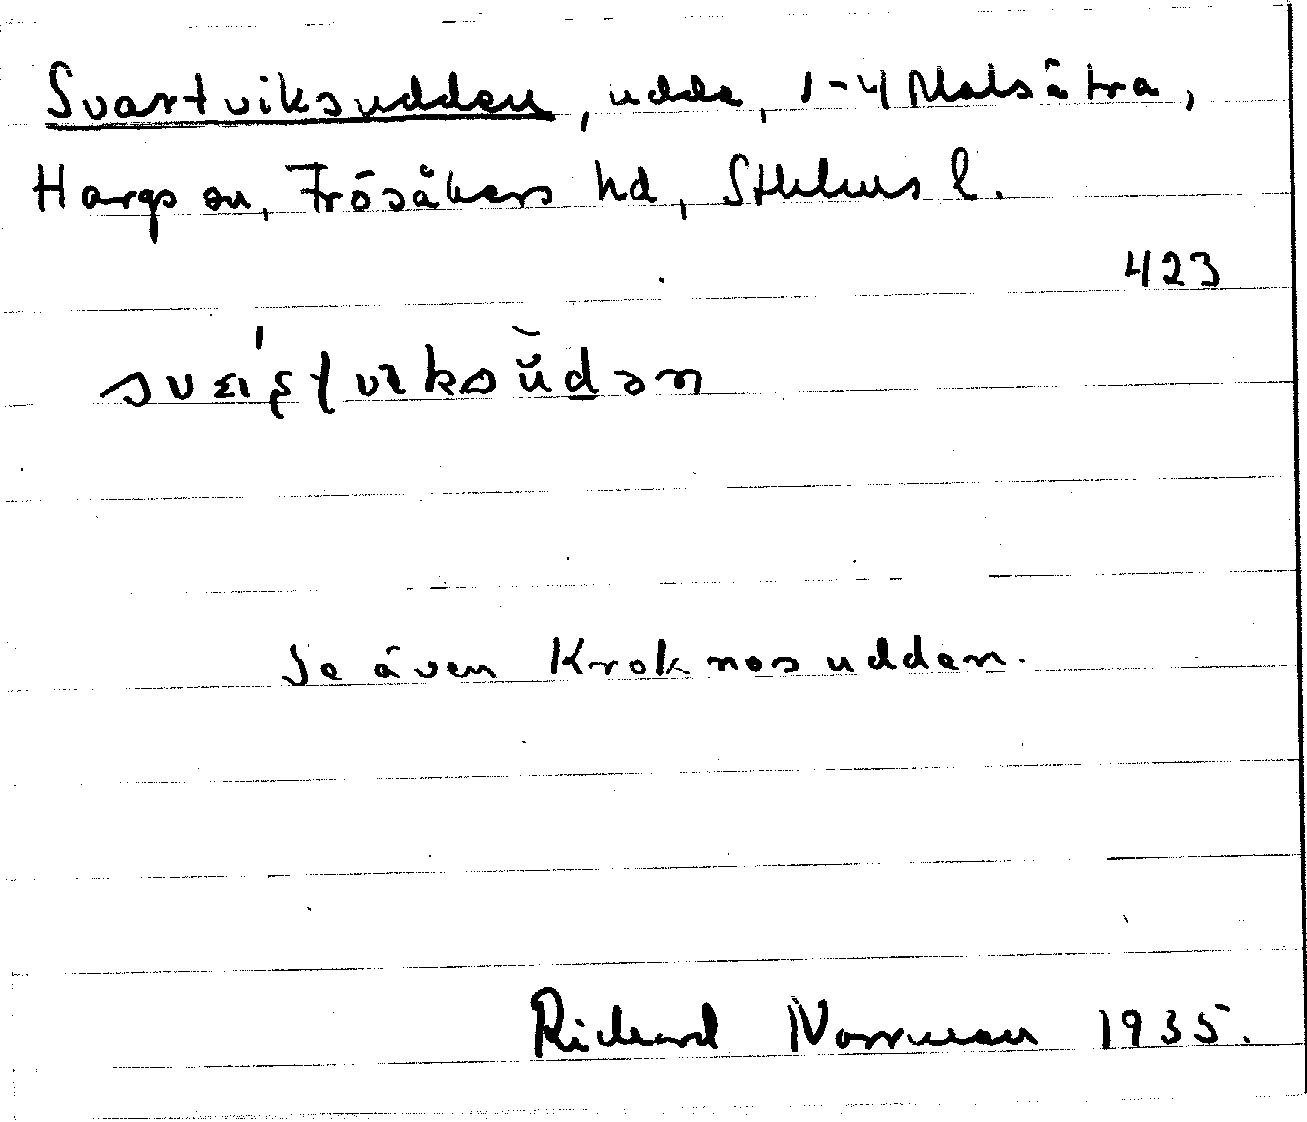 Svartviksudden, udde, 1-4 Malsätra,
Hargs sn, Frösåkers hd, Sthlms l.
423
Se även Kroknosudden.
Richard Norrman 1935.